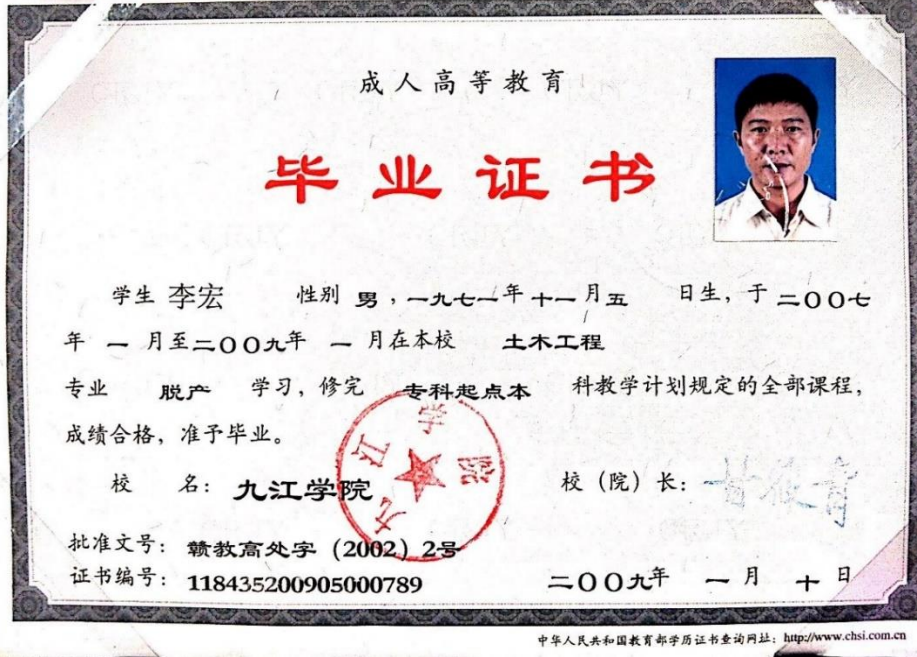 成人高等教育
毕业证书
学生 李宏 性别 男，一九七一年 十一月五 日生，于 二〇〇七
年 一 月至二〇〇九年 一 月在本校 土木工程
专业 脱产 学习，修完 专科起点本 科教学计划规定的全部课程，
成绩合格，准予毕业。
校 名：九江学院 校（院）长：
九江学院
批准文号：赣教高处字（2002）2号
证书编号：118435200905000789 二〇〇九年 一 月 十 日
中华人民共和国教育部学历证书查询网址：http://www.chsi.com.cn